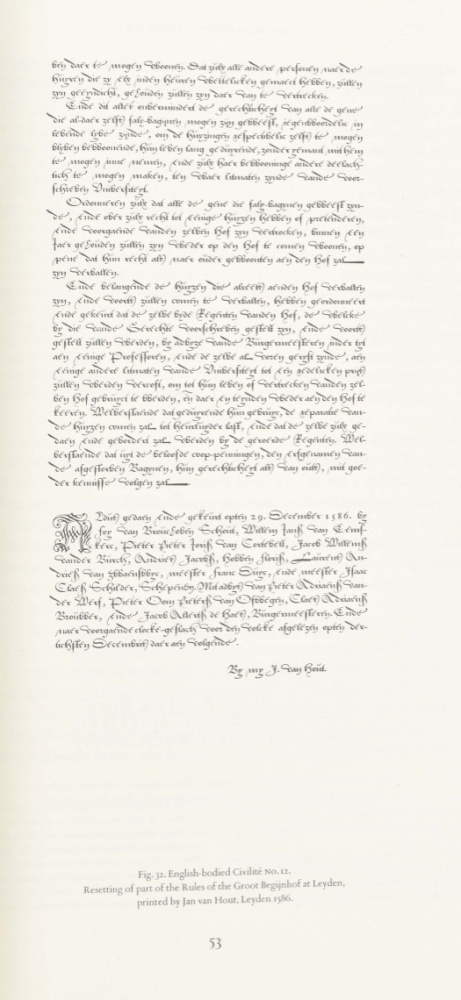 ben daer te mogen woonen. Dat zulx alle andere personen naer de
huyzen die zy elx inden heuren wettelicken gemaect hebben, zullen
zyn gerzindicht, gehouden zullen zyn daer van te vertrecken.
Ende dit alles onvermindert de gerechticheyt van alle de gene
die al-daer zelfs mogen zyn gebbeest, jegenwoordelic in
levende lyve zynde, om de huyzingen respectivelic zelfs te mogen
blyven bewoonende, hun leven lang gedurende, zonder yemant mit hem
te mogen inne nemen, ende zulx haer bewooninge andere
te mogen maken, ten waer litmaten zynde vande voor-
schreven Universiteyt.
Ordonneren zulx dat alle de gene die
de, ende over zulx recht tot eenige huyzen hebben of pretenderen,
ende voorgaende vanden zelven Hof zyn vertrocken, binnen een
Jaer gehouden zullen zyn weder op den Hof te comen woonen, op
pene dat hun recht als naer ouder gewoonten aen den Hof zal
zyn vervallen.
Ende belangende de huyzen die alreets aenden Hof vervallen
zyn, ende voorts zullen comen te vervallen, hebben geordonneert
ende gekeurt dat de zelve byde Regenten vanden Hof, de welcke
by die vande Gerechte voorschreven gestelt zyn, ende voorts
gestelt zullen werden, by advyze vande Burgermeesteren inder tyt
aen eenige Professoren, ende de zelve al voren geryft zynde, aen
eenige andere litmaten vande Universiteyt tot een redelicken prys
zullen werden vercoft, om tot hun leven of vertrecken vanden zel-
ven Hof gebruyct te werden, en daer en teynden weder aen den Hof te
keeren. Welverstaende dat gedurende hun gebruyc, de reparatie van-
de huyzen comen zal tot heurluyder last, ende dat de zelve zulx ge-
daen ende gevordert zal werden by de geroerde Regenten. Wel-
verstaende dat uyt de beloofde coop-penningen, den erfgenamen van-
de afgestorven Bagynen, hun gerechticheyt als van outs, mit goe-
der kennisse volgen zal
Aldus gedaen ende gekeurt opten 29. December 1586. by
Foy van Brouchoven Schout, Willem Jansz van
Pieter Pieter Jorisz van Cortevelt, Jacob Willemsz
vander Burch, Andries Jacobsz, Hobben Florisz, Laurens An-
driesz van meester Franc Duyc, ende meester Isaac
Claesz Schilder, Schepenen. Mitsdyen van Pieter Adriaensz van-
der Werf, Pieter Oom Pietersz van Ofwegen, Claes Adriaensz
ende Jacob Allertsz de Haes, Burgermeesteren. Ende
naer voorgaende clocke-geslach voor den volcke afgelezen opten der-
tichsten Decembris daer aen volgende.
By my J. van Hout.
Fig. 32. English-bodied Civilité NO. 12.
Resetting of part of the Rules of the Groot Begijnhof at Leyden,
printed by Jan van Hout, Leyden 1586.
53